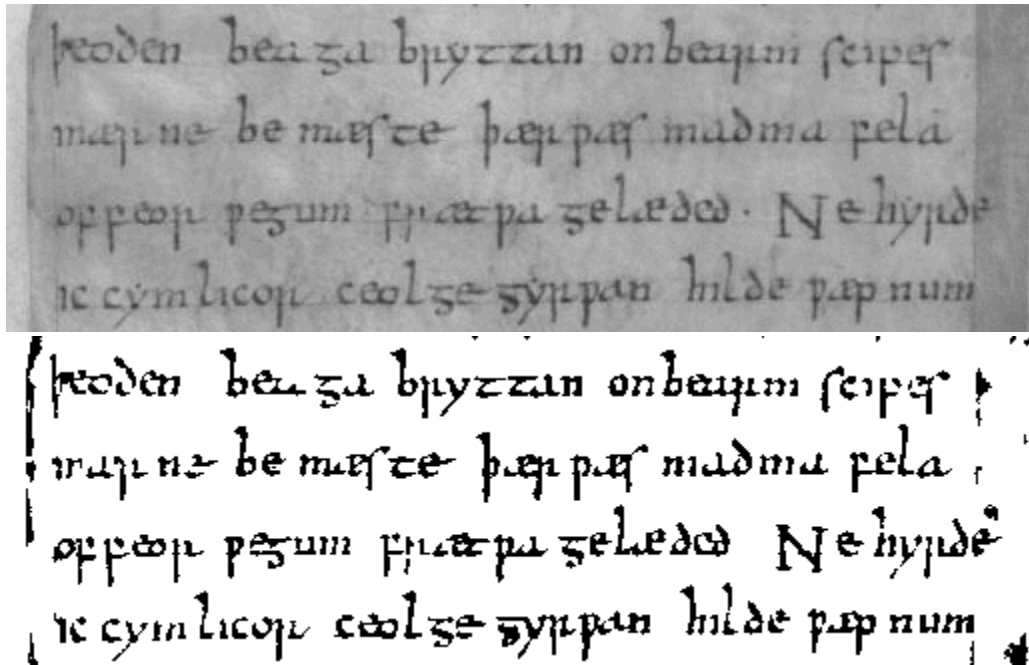 þeoden beaga bryttan onbearm scipes
mærne be mæste þær ƿæs madma fela
offeor ƿegum frætƿa gelæded · Ne hyrde
ic cymlicor ceol gegyrƿan hilde ƿæpnum
þeoden beaga bryttan onbearm scipes
mærne be mæste þær ƿæs madma fela
offeor ƿegum frætƿa gelæded Ne hyrde
ic cymlicor ceol gegyrƿan hilde ƿæpnum